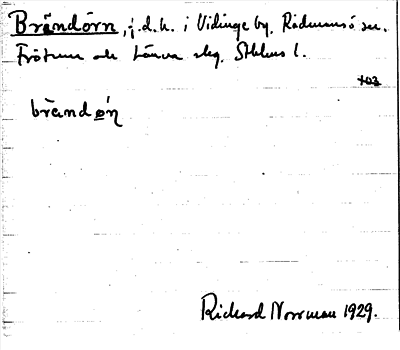 Brändörn, f.d.h. i Vidinge by, Rådmansö sn.
Frötuna och Länna slg. Sthlms l.
103
brändøṇ
Richard Norrman 1929.